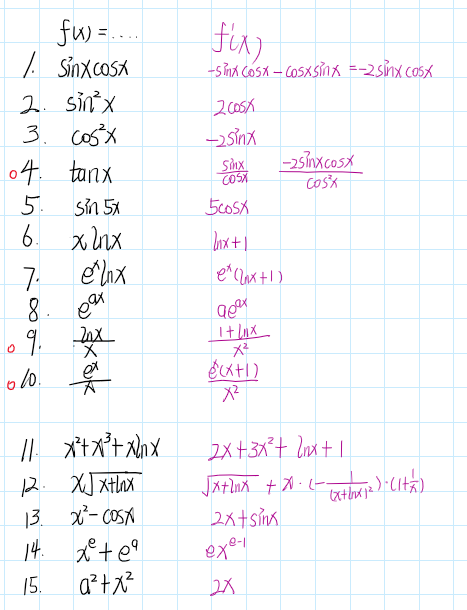 f(x) = .... f'(x)
1. sinxcosx -sinxcosx - cosxsinx = -2sinxcosx
2. sin²x 2cosx
3. cos²x -2sinx
4. tanx sinx/cosx -2sinxcosx/cos²x
5. sin5x 5cosx
6. xlnx lnx+1
7. eˣlnx eˣ(lnx+1)
8. eᵃˣ aeᵃˣ
9. lnx/x 1+lnx/x²
10. eˣ/x eˣ(x+1)/x²
11. x²+x³+xlnx 2x+3x²+lnx+1
12. x√(x+lnx) √(x+lnx) + x·(-1/(x+lnx)²)·(1+1/x)
13. x²-cosx 2x+sinx
14. xᵉ+e^q ex^(e-1)
15. a²+x² 2x